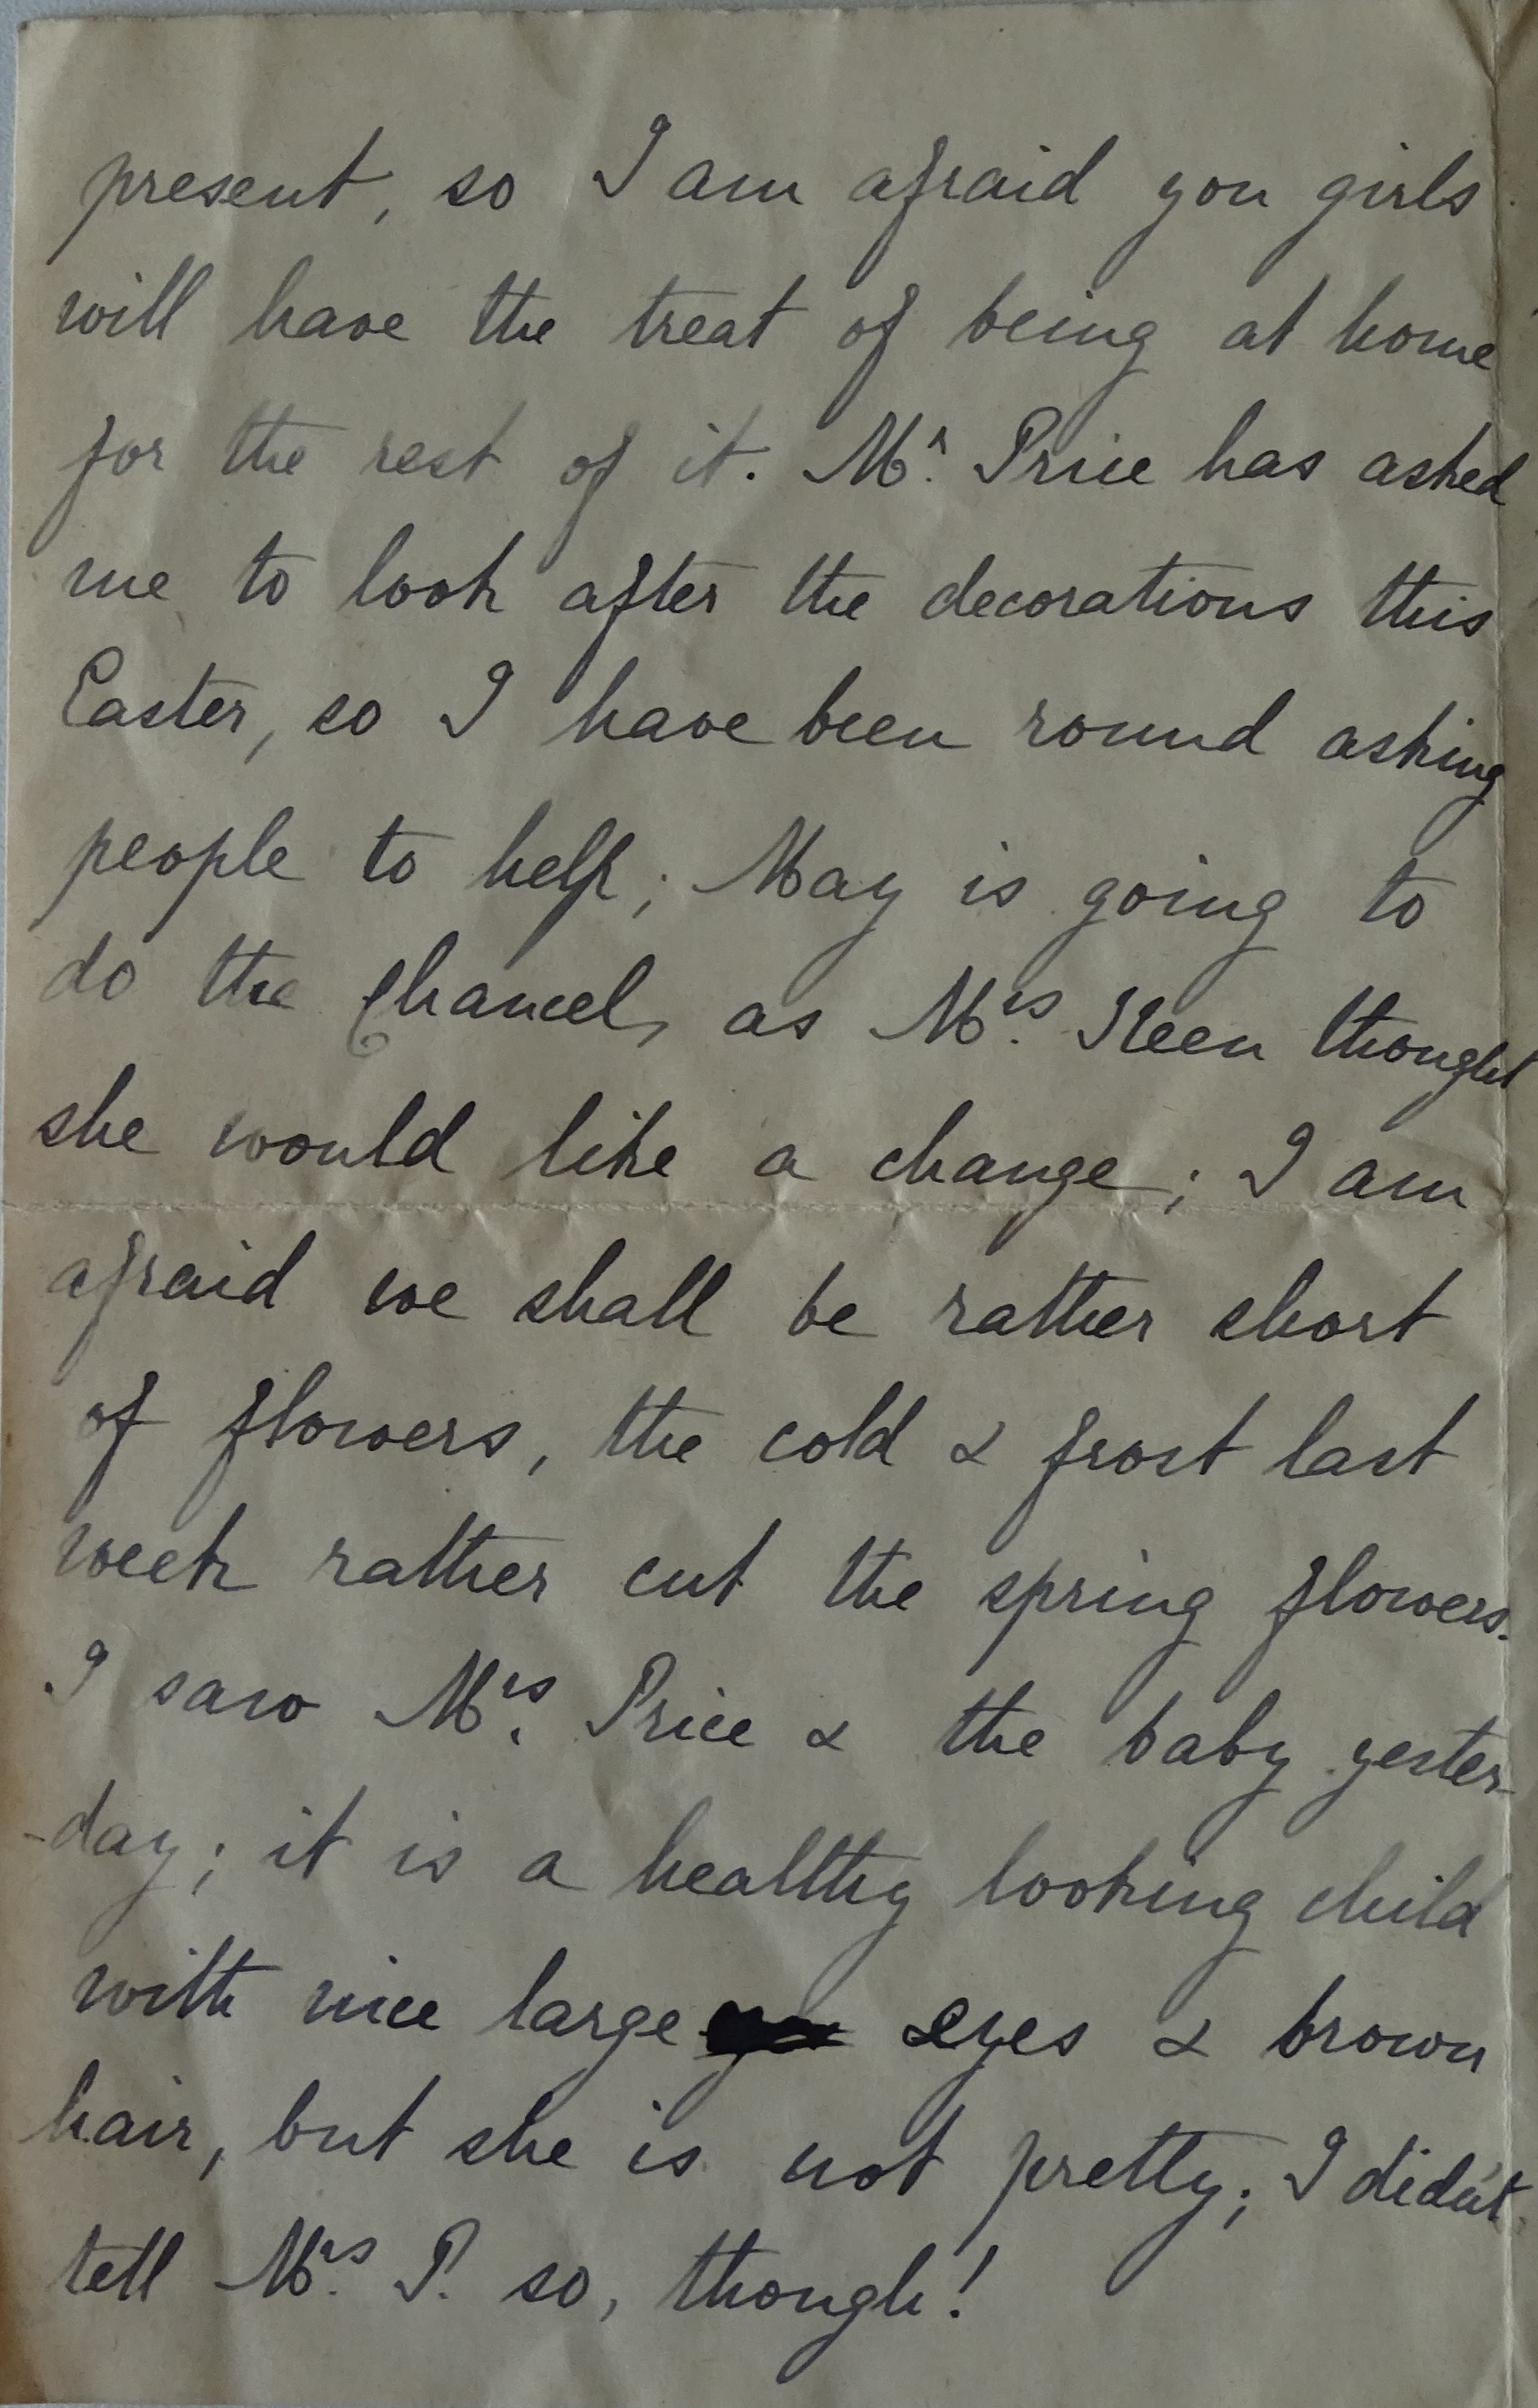 present, so I am afraid you girls
will have the treat of being at home
for the rest of it. Mr. Price has asked
me to look after the decorations this
Easter, so I have been round asking
people to help; May is going to
do the Chancel, as Mrs. Keen thought
she would like a change; I am
afraid we shall be rather short
of flowers, the cold & frost last
week rather cut the spring flowers.
I saw Mrs. Price & the baby yester-
-day; it is a healthy looking child
with nice large eyes & brown
hair, but she is not pretty; I didn't
tell Mrs. P. so, though!